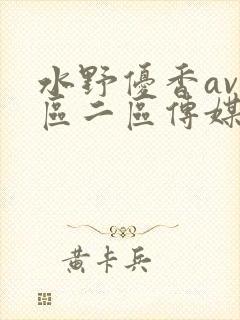 水野優香av
區二區傳媒
黃卡兵